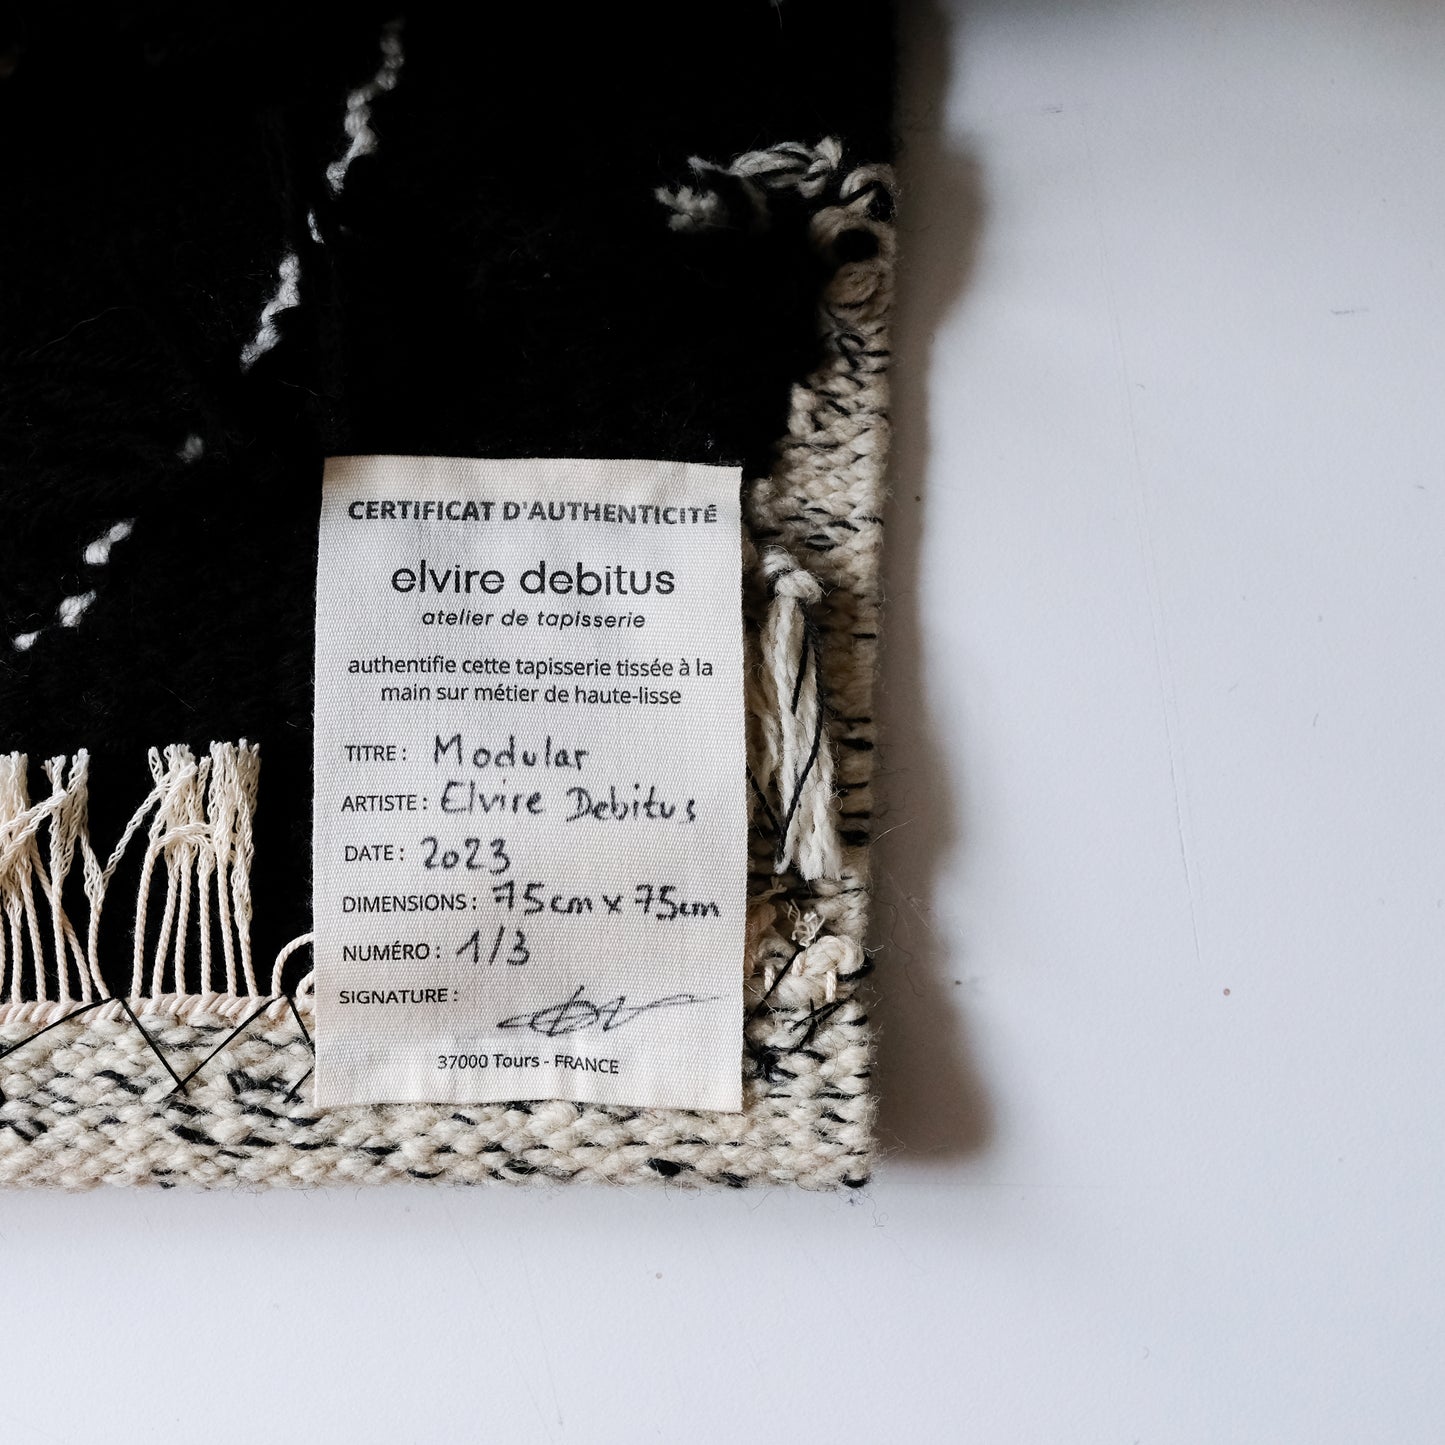 CERTIFICAT D'AUTHENTICITÉ
elvire debitus
atelier de tapisserie
authentifie cette tapisserie tissée à la
main sur métier de haute-lisse
TITRE : Modular
ARTISTE : Elvire Debitus
DATE : 2023
DIMENSIONS : 75cm x 75cm
NUMÉRO : 1/3
SIGNATURE :
37000 Tours - FRANCE